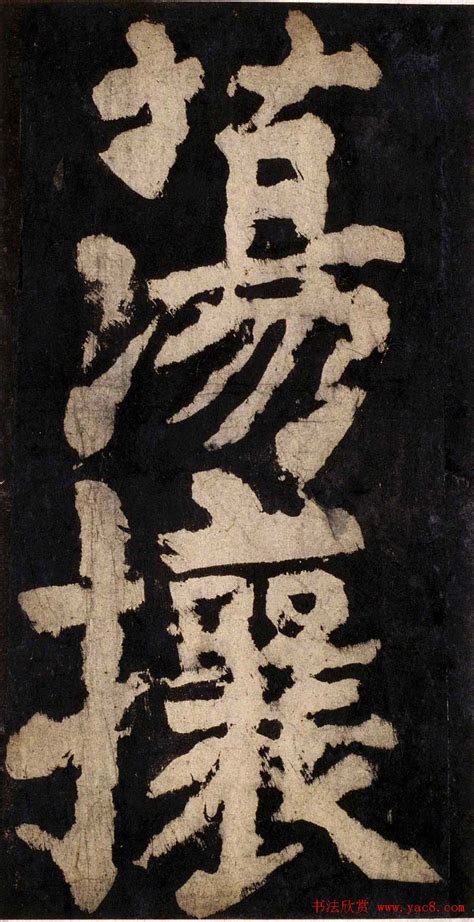 蕩
攘
书法欣赏 www.yac8.com